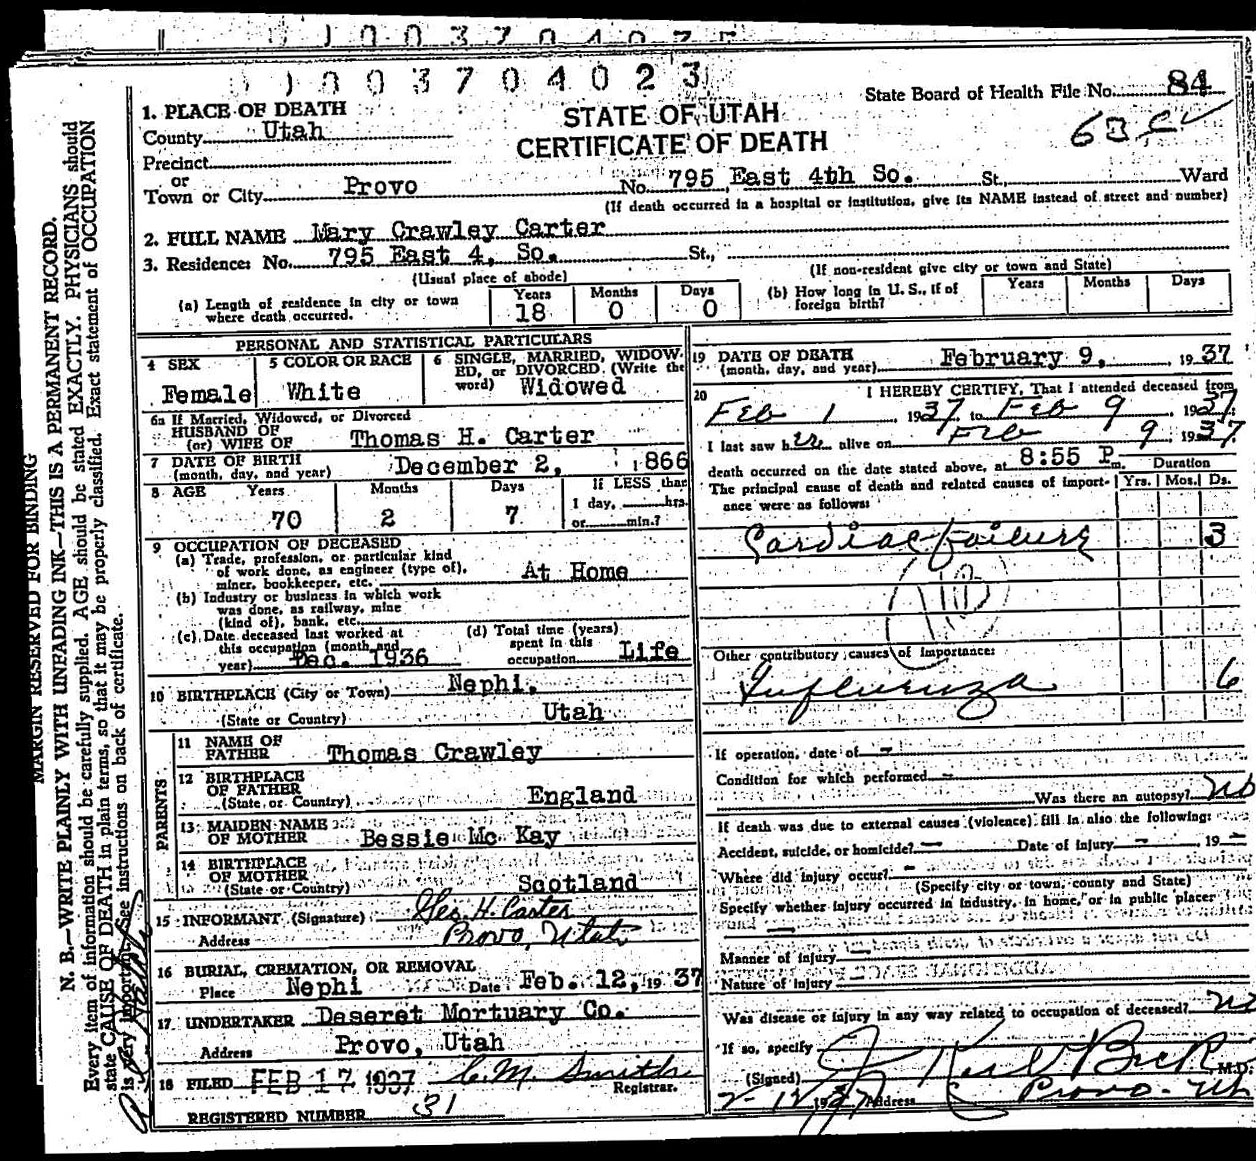 0 1 0 0 3 7 0 4 0 2 3
State Board of Health File No. 84
STATE OF UTAH
CERTIFICATE OF DEATH
1. PLACE OF DEATH
County Utah
Precinct
or
Town or City Provo No. 795 East 4th So. St., Ward
(If death occurred in a hospital or institution, give its NAME instead of street and number)
2. FULL NAME Mary Crawley Carter
3. Residence: No. 795 East 4, So. St.,
(Usual place of abode) (If non-resident give city or town and State)
(a) Length of residence in city or town where death occurred. Years 18 Months 0 Days 0
(b) How long in U. S., if of foreign birth? Years Months Days
PERSONAL AND STATISTICAL PARTICULARS
4 SEX Female
5 COLOR OR RACE White
6 SINGLE, MARRIED, WIDOWED, or DIVORCED (Write the word) Widowed
6a If Married, Widowed, or Divorced
HUSBAND OF
(or) WIFE OF Thomas H. Carter
7 DATE OF BIRTH
(month, day, and year) December 2, 1866
8 AGE Years 70 Months 2 Days 7
If LESS than
1 day, hrs.
or min.?
9 OCCUPATION OF DECEASED
(a) Trade, profession, or particular kind
of work done, as engineer (type of),
miner, bookkeeper, etc. At Home
(b) Industry or business in which work
was done, as railway, mine
(kind of), bank, etc.
(c) Date deceased last worked at
this occupation (month and
year) Dec. 1936
(d) Total time (years)
spent in this
occupation Life
10 BIRTHPLACE (City or Town) Nephi,
(State or Country) Utah
PARENTS
11 NAME OF
FATHER Thomas Crawley
12 BIRTHPLACE
OF FATHER
(State or Country) England
13 MAIDEN NAME
OF MOTHER Bessie Mc Kay
14 BIRTHPLACE
OF MOTHER
(State or Country) Scotland
15 INFORMANT (Signature) Geo. H. Carter
Address Provo, Utah
16 BURIAL, CREMATION, OR REMOVAL
Place Nephi Date Feb. 12, 1937
17 UNDERTAKER Deseret Mortuary Co.
Address Provo, Utah
18 FILED FEB 17 1937
Registrar.
REGISTERED NUMBER 31
19 DATE OF DEATH
(month, day, and year) February 9, 1937
20 I HEREBY CERTIFY, That I attended deceased from
Feb 1 1937 to Feb 9, 1937:
I last saw her alive on Feb 9, 1937
death occurred on the date stated above, at 8:55 P m. Duration
The principal cause of death and related causes of importance were as follows: Yrs. Mos. Ds.
Cardiac failure 3
Other contributory causes of importance:
Influenza 6
If operation, date of -
Condition for which performed -
Was there an autopsy? No
If death was due to external causes (violence) fill in also the following:
Accident, suicide, or homicide? - Date of injury - , 19 -
Where did injury occur? -
(Specify city or town, county and State)
Specify whether injury occurred in industry, in home, or in public place
Manner of injury
Nature of injury
Was disease or injury in any way related to occupation of deceased? No
If so, specify
(Signed) J Karl Beck, M.D.
2-12 1937 Address Provo - Ut
MARGIN RESERVED FOR BINDING
N. B.—WRITE PLAINLY WITH UNFADING INK—THIS IS A PERMANENT RECORD.
Every item of information should be carefully supplied. AGE should be stated EXACTLY. PHYSICIANS should
state CAUSE OF DEATH in plain terms, so that it may be properly classified. Exact statement of OCCUPATION
is very important. See instructions on back of certificate.